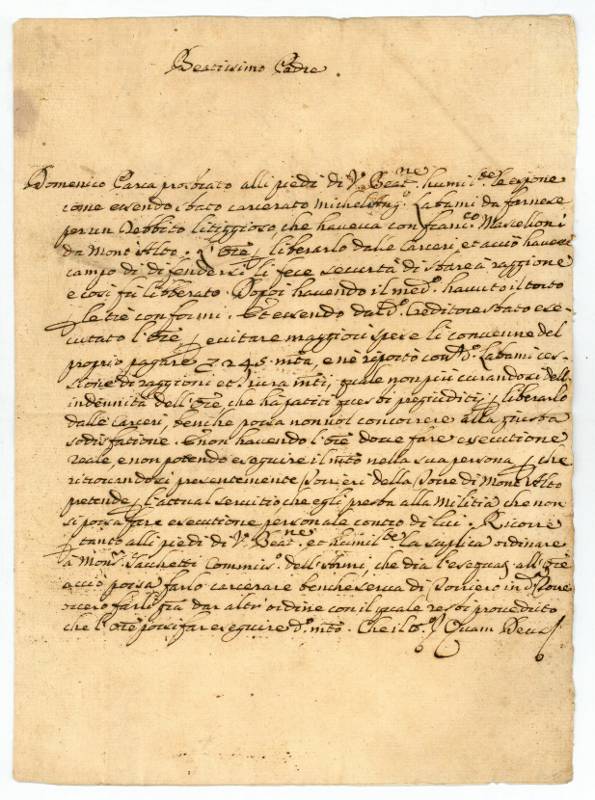 Beatissimo Padre.
Domenico Carca prostrato alli piedi di V. Beat.ne humil.te le espone
come essendo stato carcerato Michelang. Labami da fornese
per un Debbito litiggioso, che haveva con franc.o Marcelloni
da Mont'Alto, l'Ore p liberarlo dalle Carceri, et acciò havesse
campo di difendersi li fece securtà di stare à raggione
e così fù libberato. Dopoi havendo il med.o havuto il torto
p le tre conformi. Et essendo da d.o Creditore stato ese-
cutato l'Ore, p evitare maggiori spese li convenne del
proprio pagare 245 mta, e nè riportò con d.o Labami ces-
sione di raggioni et Jura mti, quale non più curandosi dell'
indennità dell'Ore, che hà patiti questi pregiuditij p liberarlo
dalle Carceri, benche possa non vol concorrere alla giusta
sodisfatione. E non havendo l'Ore dove fare esecutione
reale, e non potendo eseguire il mto nella sua persona, p che
ritrovandosi presentemente Torriero della Torre di Mont'Alto
pretende p l'actual servitio che egli presta alla Militia che non
si possa fare esecutione personale contro di lui. Ricorre
p tanto alli piedi di V. Beat.ne, et humil.te la suplica ordinare
à Mons. Sacchetti Commis.o dell'Armi, che dia l'esequat. all'Ore
acciò possa farlo carcerare benche serva di Torriero in d.a Torre
overo farli già dar altr'ordine con il quale resti proveduto
che l'Ore possi far eseguire d.o mto. Che il to. Quam Deus